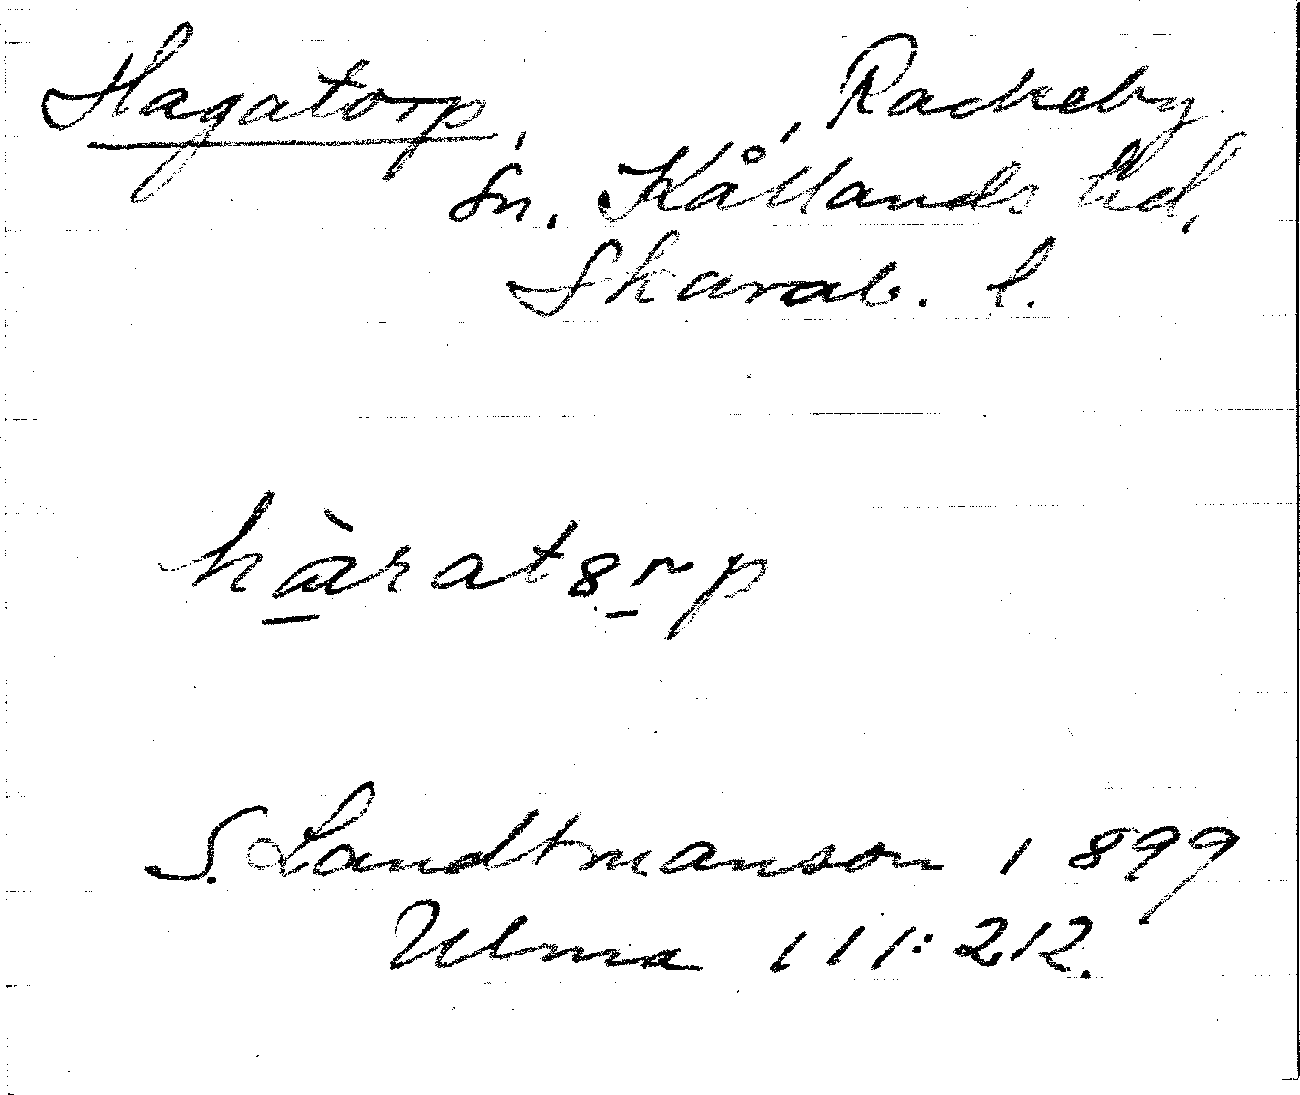 Hagatorp, Rackeby
Sn. Kållands hd,
Skarab. l.
hàrat8rp
S. Landtmanson 1899
Ulma 111:212.